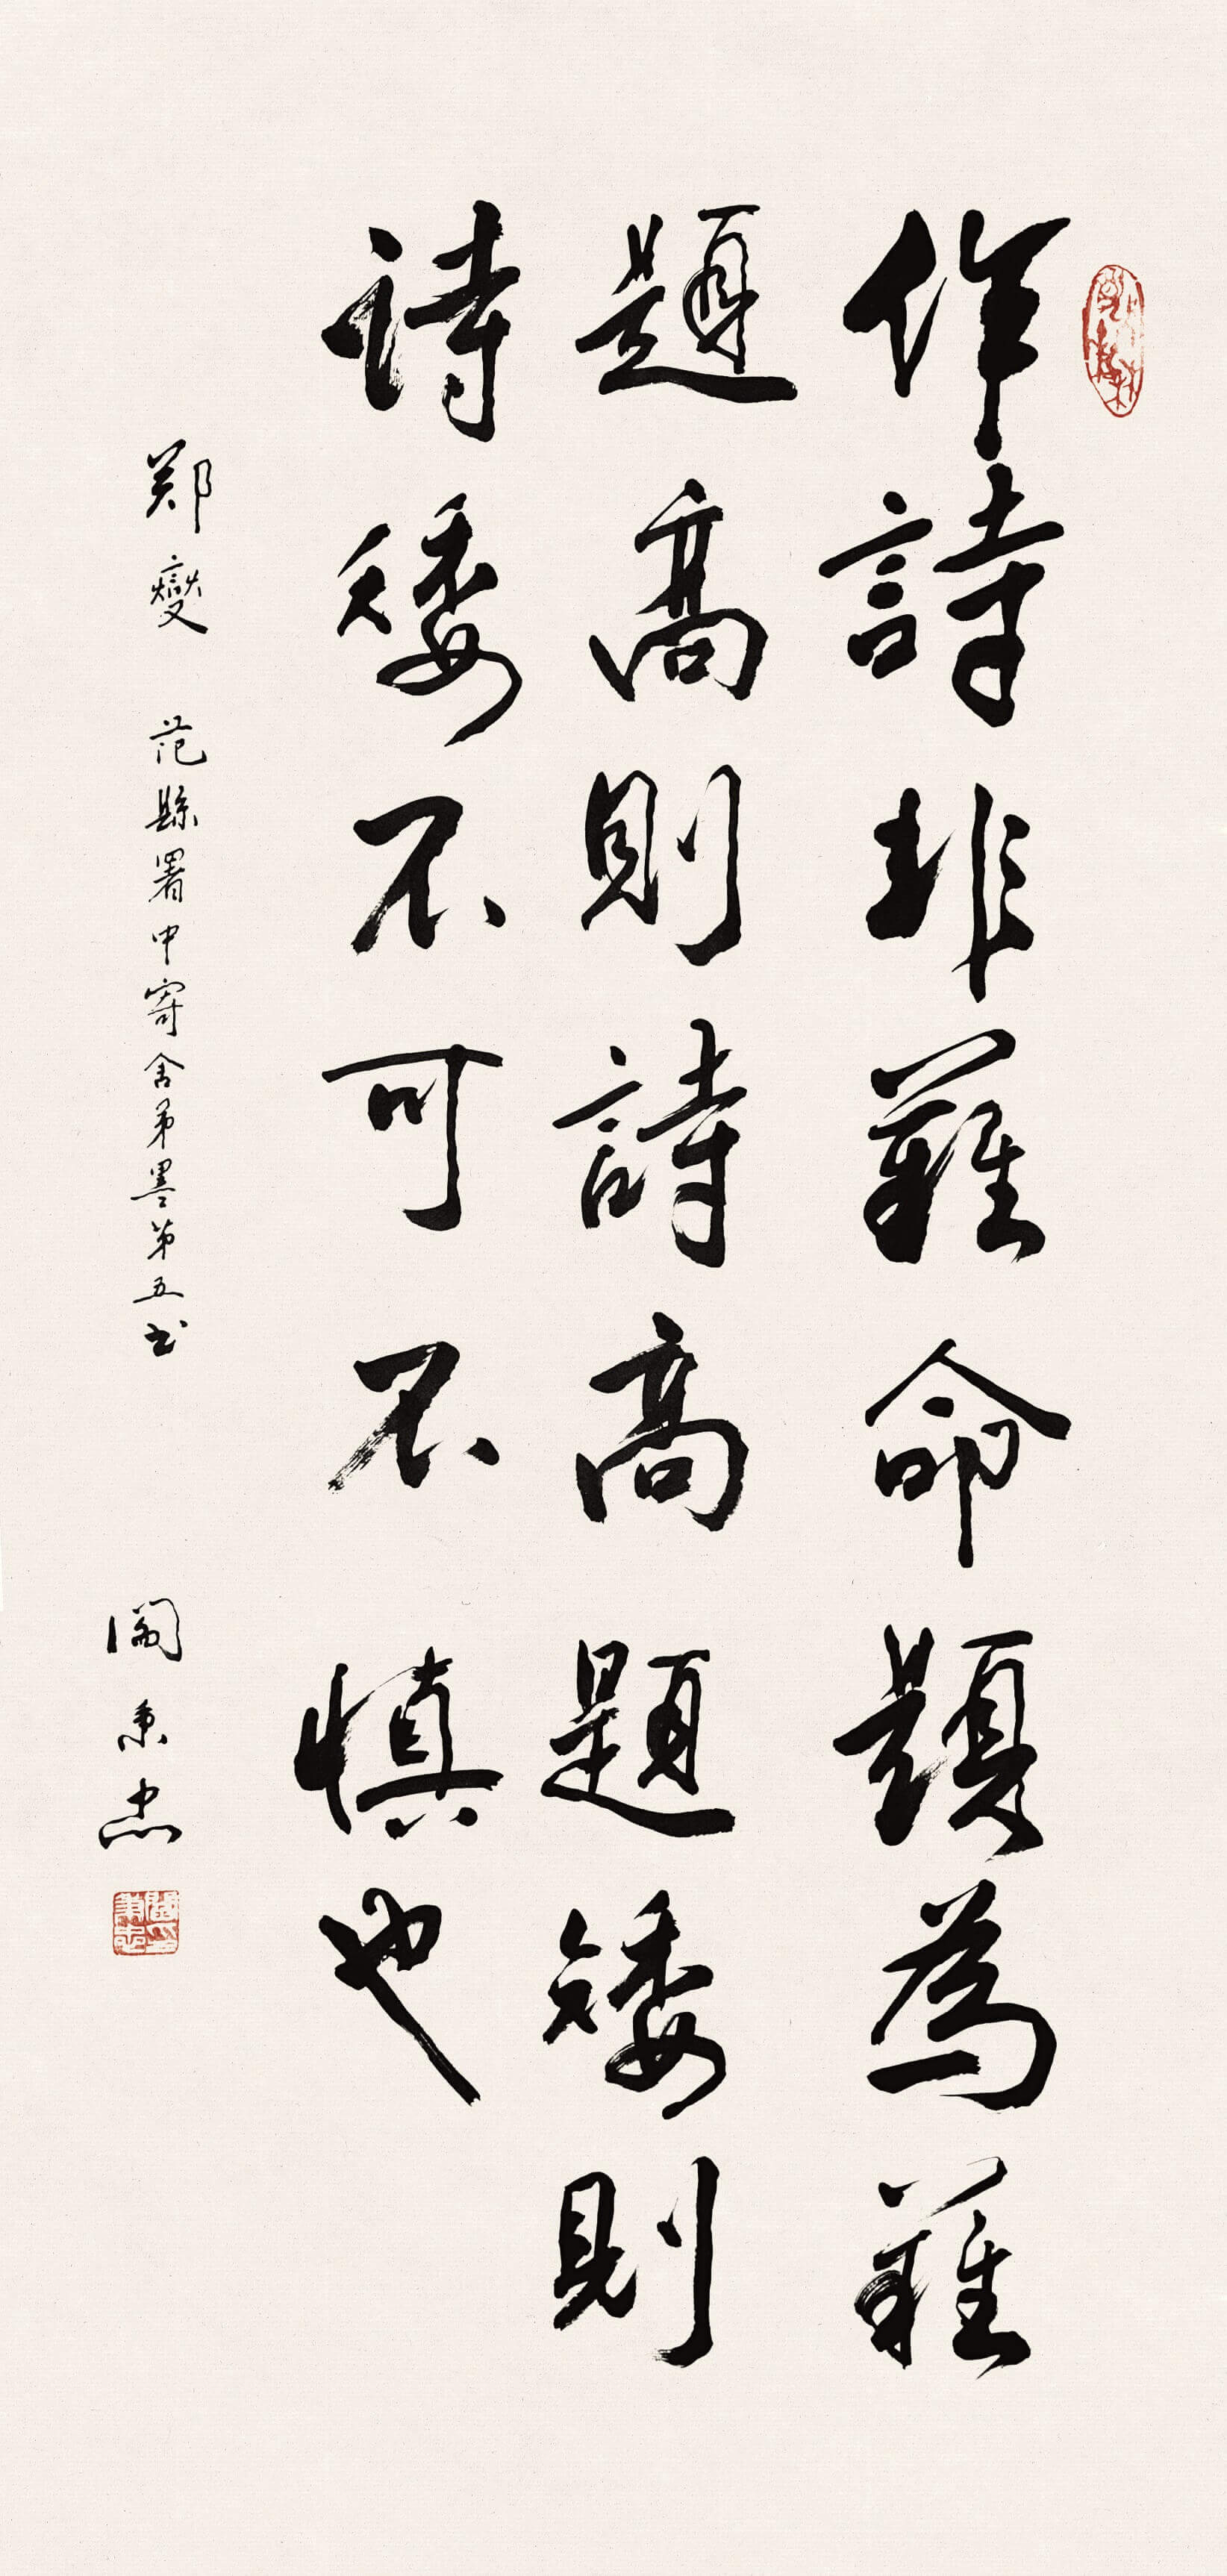 作詩非難命題為難
題高則詩高題矮則
詩矮不可不慎也
郑燮 范縣署中寄舍弟墨第五书
秉忠